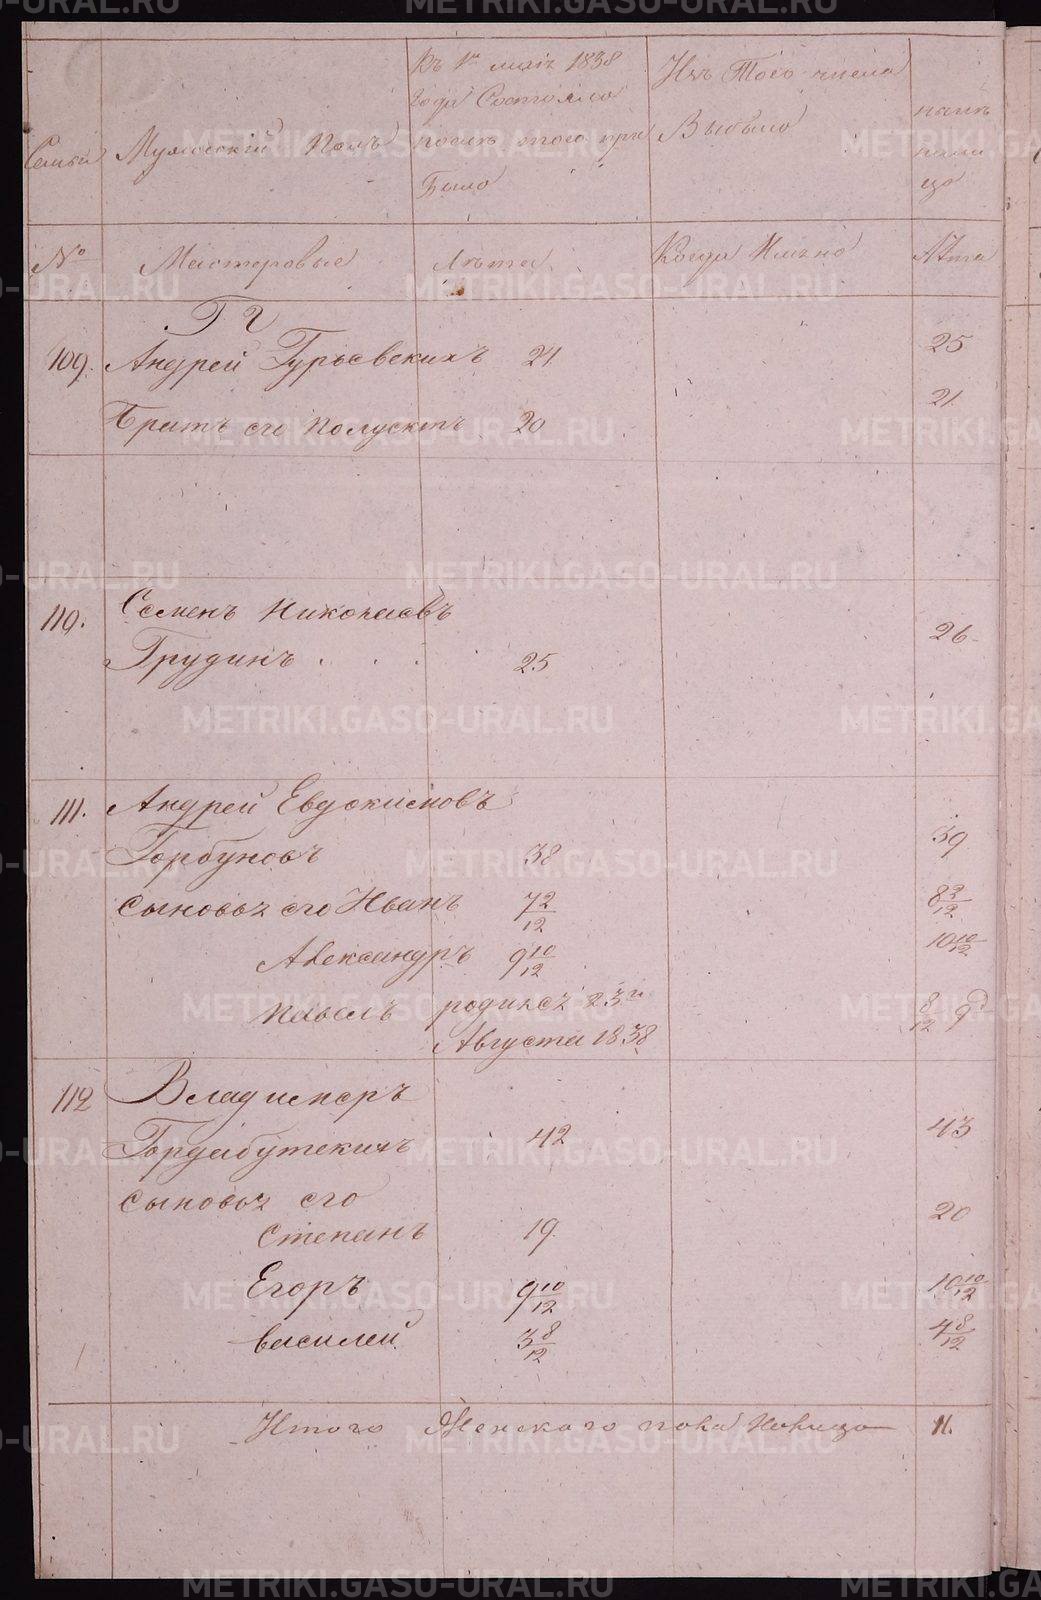 Семьи
Мужеский Полъ
Къ 1му маія 1838
года Состояло
послѣ того при
Было
Изъ Того числа
Выбыло
налицо
№
Мастеровые
Лѣта
Когда Имяно
Лѣта
109. Андрей Гурьевскихъ 24 25
Братъ его Полуектъ 20 21
110. Семенъ Николаевъ
Грудинъ . . . 25 26
111. Андрей Евдокимовъ
Горбуновъ 38 39
сыновья его Иванъ 7 2/12 8 2/12
Александръ 9 10/12 10 10/12
Павелъ родился 23го 8/12 9д
Августа 1838
112 Владимеръ
Гордейбутскихъ 42 43
сыновья его
Степанъ 19. 20
Егоръ 9 10/12 10 10/12
василей 3 8/12 4 8/12
Итого Женского пола Налицо 11.
METRIKI.GASO-URAL.RU